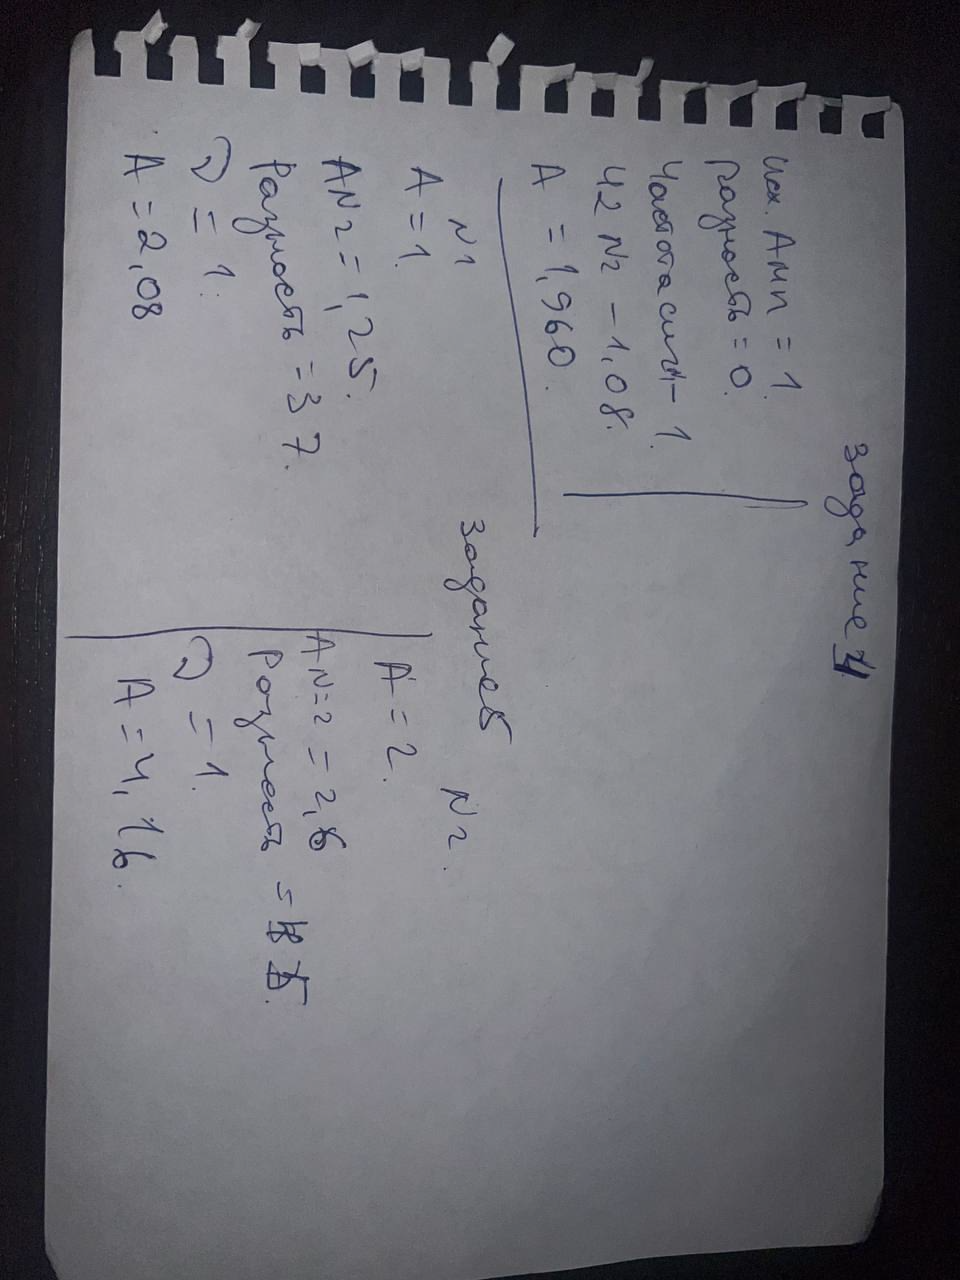 Задание 4
Исх. Амп = 1.
Разность = 0.
Частота сигн - 1.
Ч2 N2 - 1,08.
А = 1,960.
Задание 5
N1
А = 1.
АN2 = 1,25.
Разность = 37.
ν = 1.
А = 2,08
N2.
А = 2.
АN=2 = 2,6
Разность =
ν = 1.
А = 4,16.